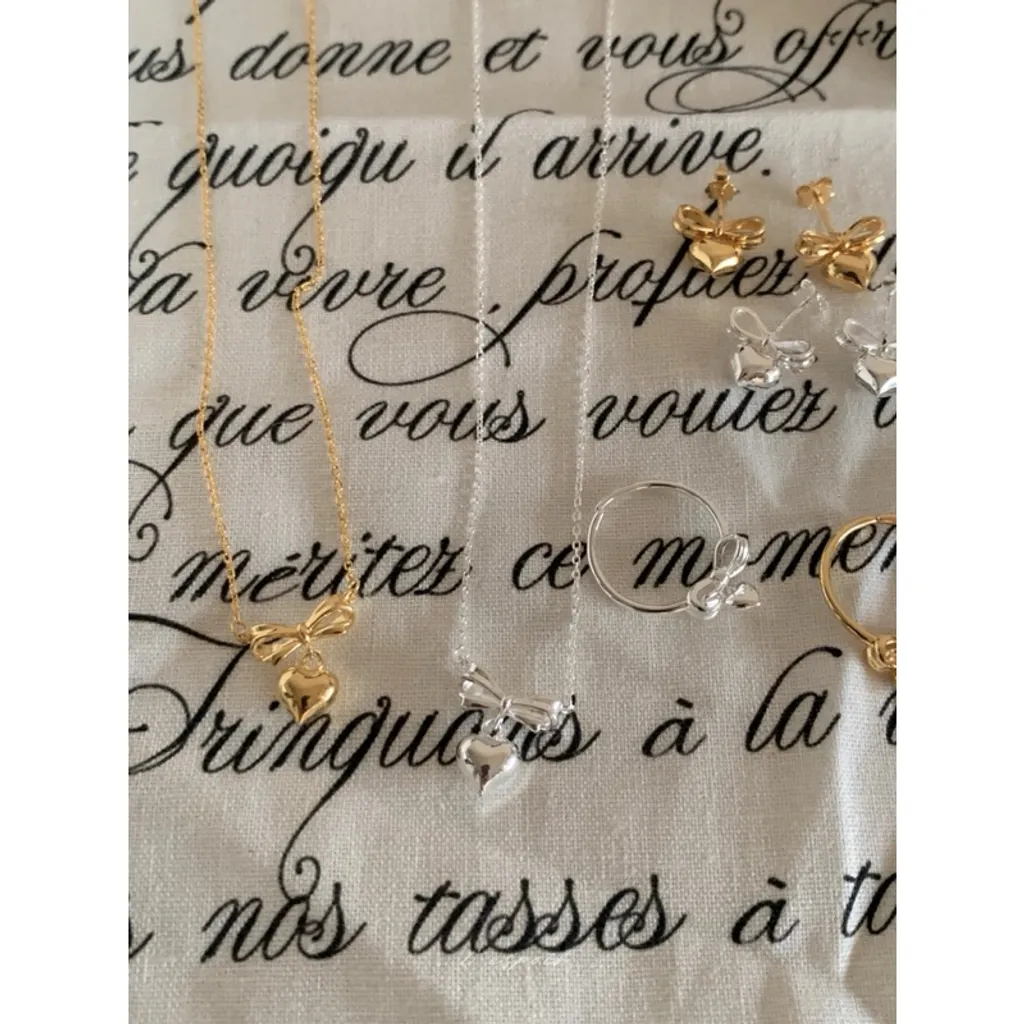 us donne et vous offr
quoiqu il arrive.
la vivre, profitez
que vous voulez
méritez ce momen
Trinquons à la
nos tasses à to